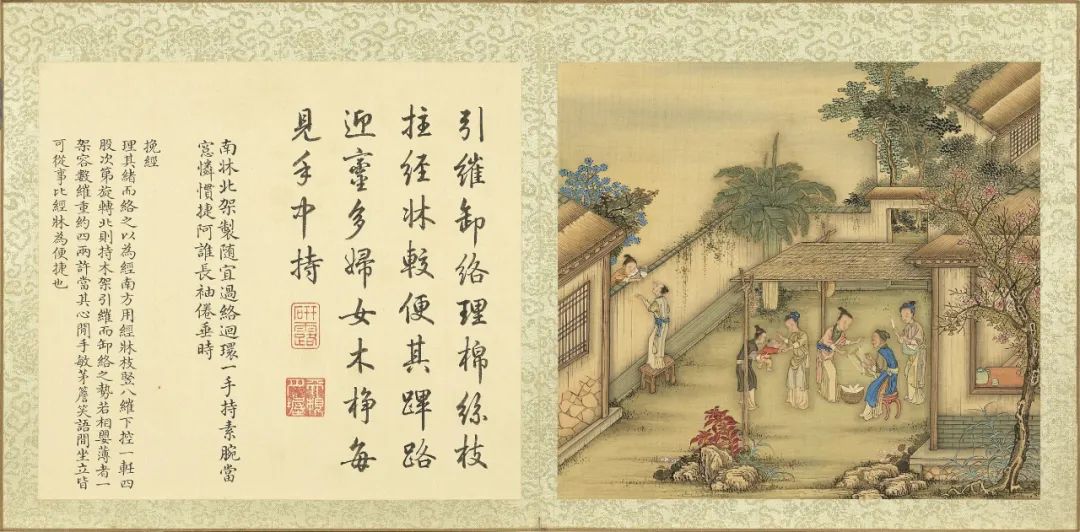 引繀卸絡理棉絲枝
拄經牀較便其蹕路
迎鑾多婦女木每
見手中持
南牀北架製隨宜過絡迴環一手持素腕當
窓憐慣捷阿誰長袖倦垂時
挽經
理其緒而絡之以為經南方用經牀枝竪八繀下控一軖四
股次第旋轉北則持木架引繀而卸絡之勢若相嬰薄者一
架容數繀重約四兩許當其心閒手敏茅簷笑語間坐立皆
可從事比經牀為便捷也